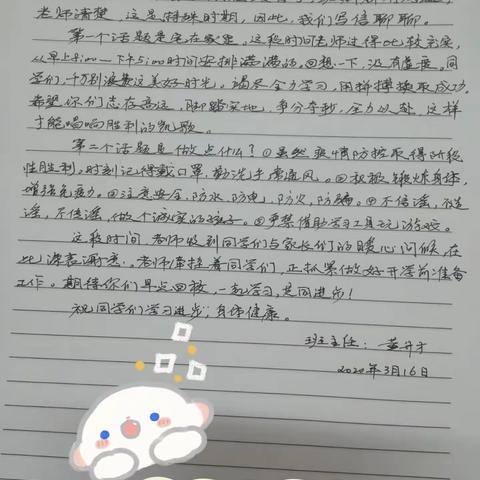 老师清楚，这是特殊时期，因此，我们写信聊聊。
第一个话题是宅在家里。这段时间老师过得比较充实，
从早上8:00—下午5:00时间安排满满的。回想一下，没有虚度。同
学们，千万别浪费这美好时光。竭尽全力学习，用拼搏换取成功。
希望你们志存高远，脚踏实地，争分夺秒，全力以赴，这样
才能唱响胜利的凯歌。
第二个话题是做点什么？①虽然疫情防控取得阶段
性胜利，时刻记得戴口罩，勤洗手常通风。②积极锻炼身体，
增强免疫力。③注意安全，防水、防电、防火、防骗。④不信谣，不造
谣，不传谣，做个诚实的孩子。⑤严禁借助学习工具玩游戏。
这段时间，老师收到同学们与家长们的暖心问候，在
此深表谢意。老师牵挂着同学们，正抓紧做好开学前准备
工作。期待你们早点回校，一起学习，共同进步！
祝同学们学习进步，身体健康。
班主任：黄升才
2020年3月16日